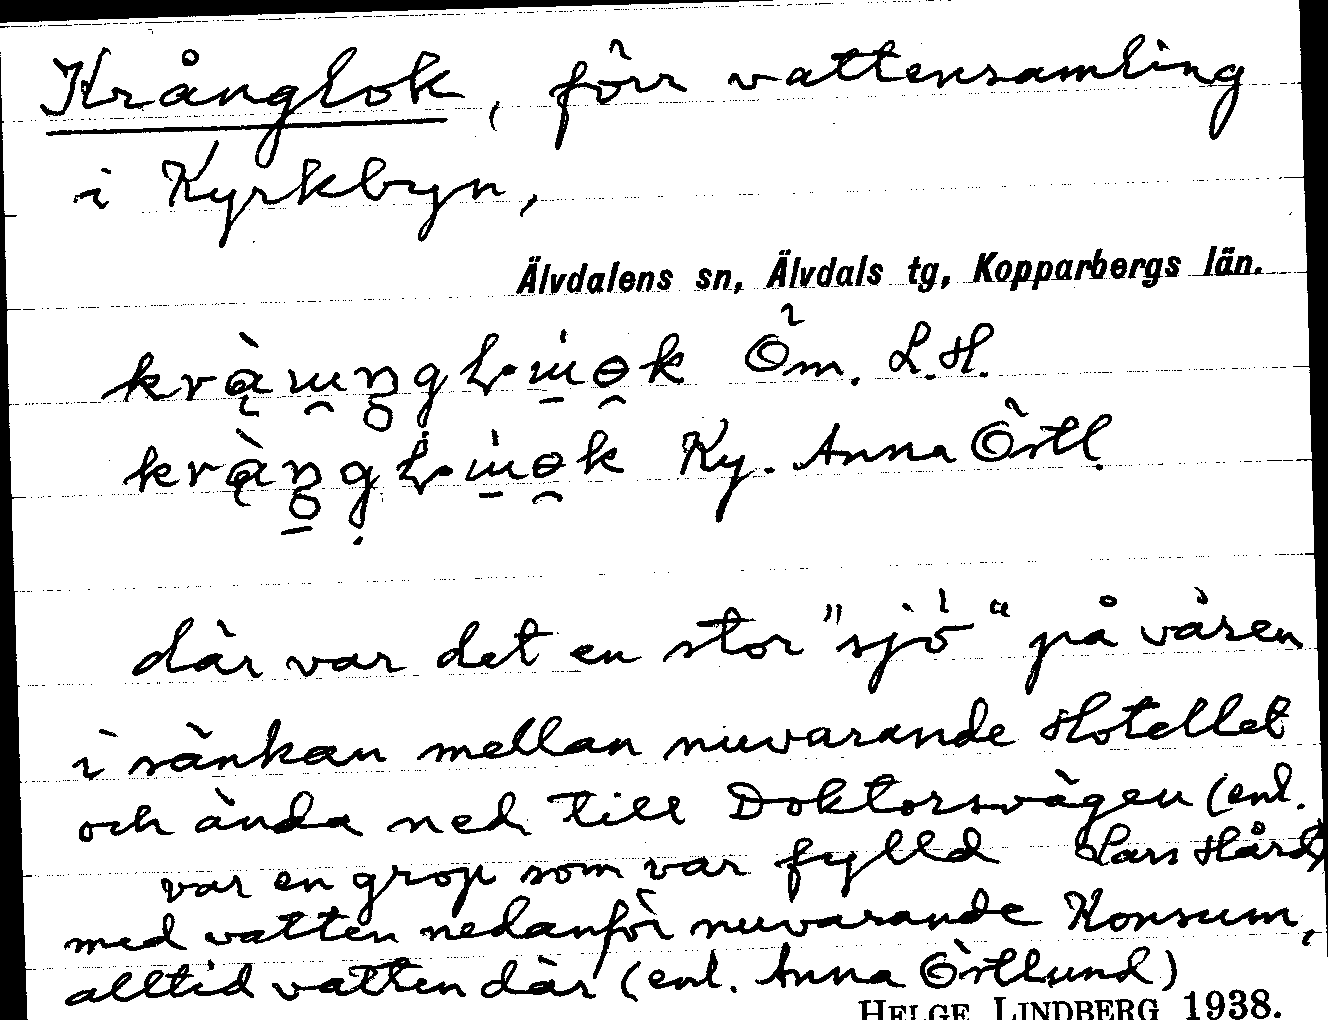 Krånglok, förr vattensamling
i Kyrkbyn,
Älvdalens sn, Älvdals tg, Kopparbergs län.
Öm. L.H.
Ky. Anna Örtl.
där var det en stor "sjö" på våren
i sänkan mellan nuvarande Hotellet
och ända ned till Doktorsvägen (enl.
Lars Hård)
var en grop som var fylld
med vatten nedanför nuvarande Konsum,
alltid vatten där (enl. Anna Örtlund)
HELGE LINDBERG 1938.